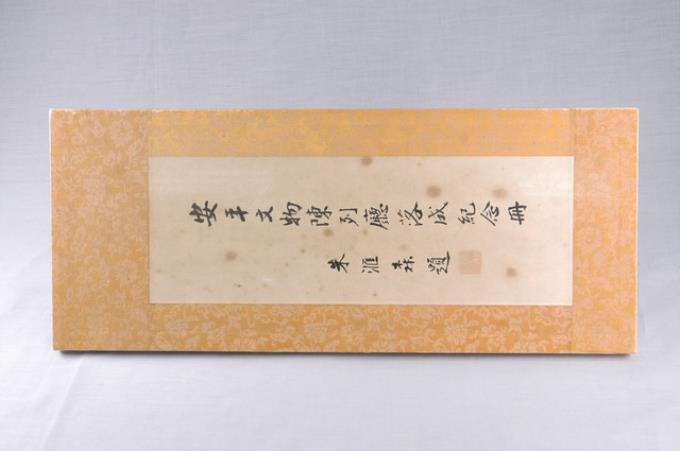 安平文物陳列廳落成紀念冊
朱滙森題